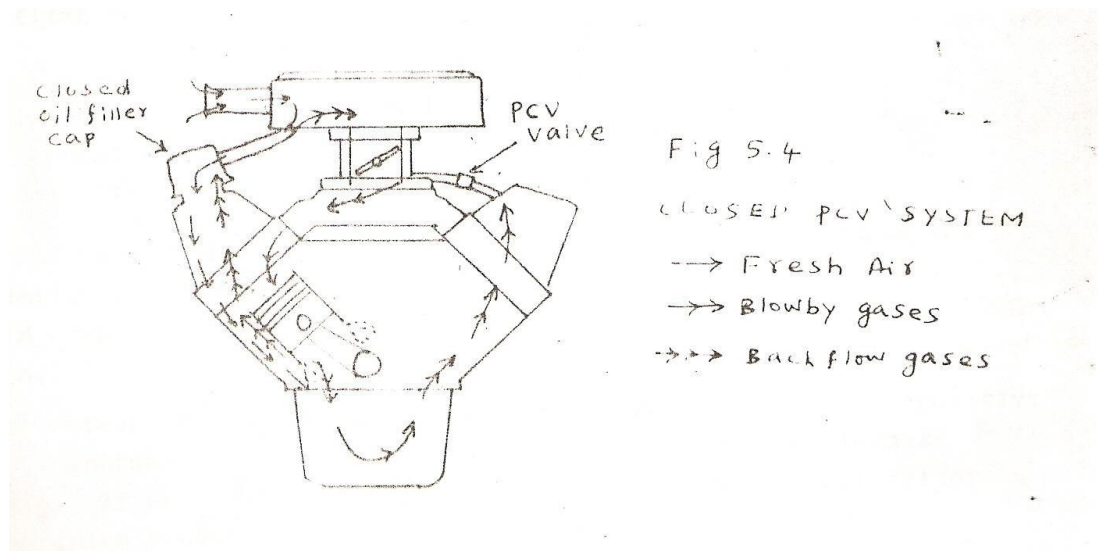 closed
oil filler
cap
PCV
valve
Fig 5.4
CLOSED PCV SYSTEM
Fresh Air
Blowby gases
Backflow gases